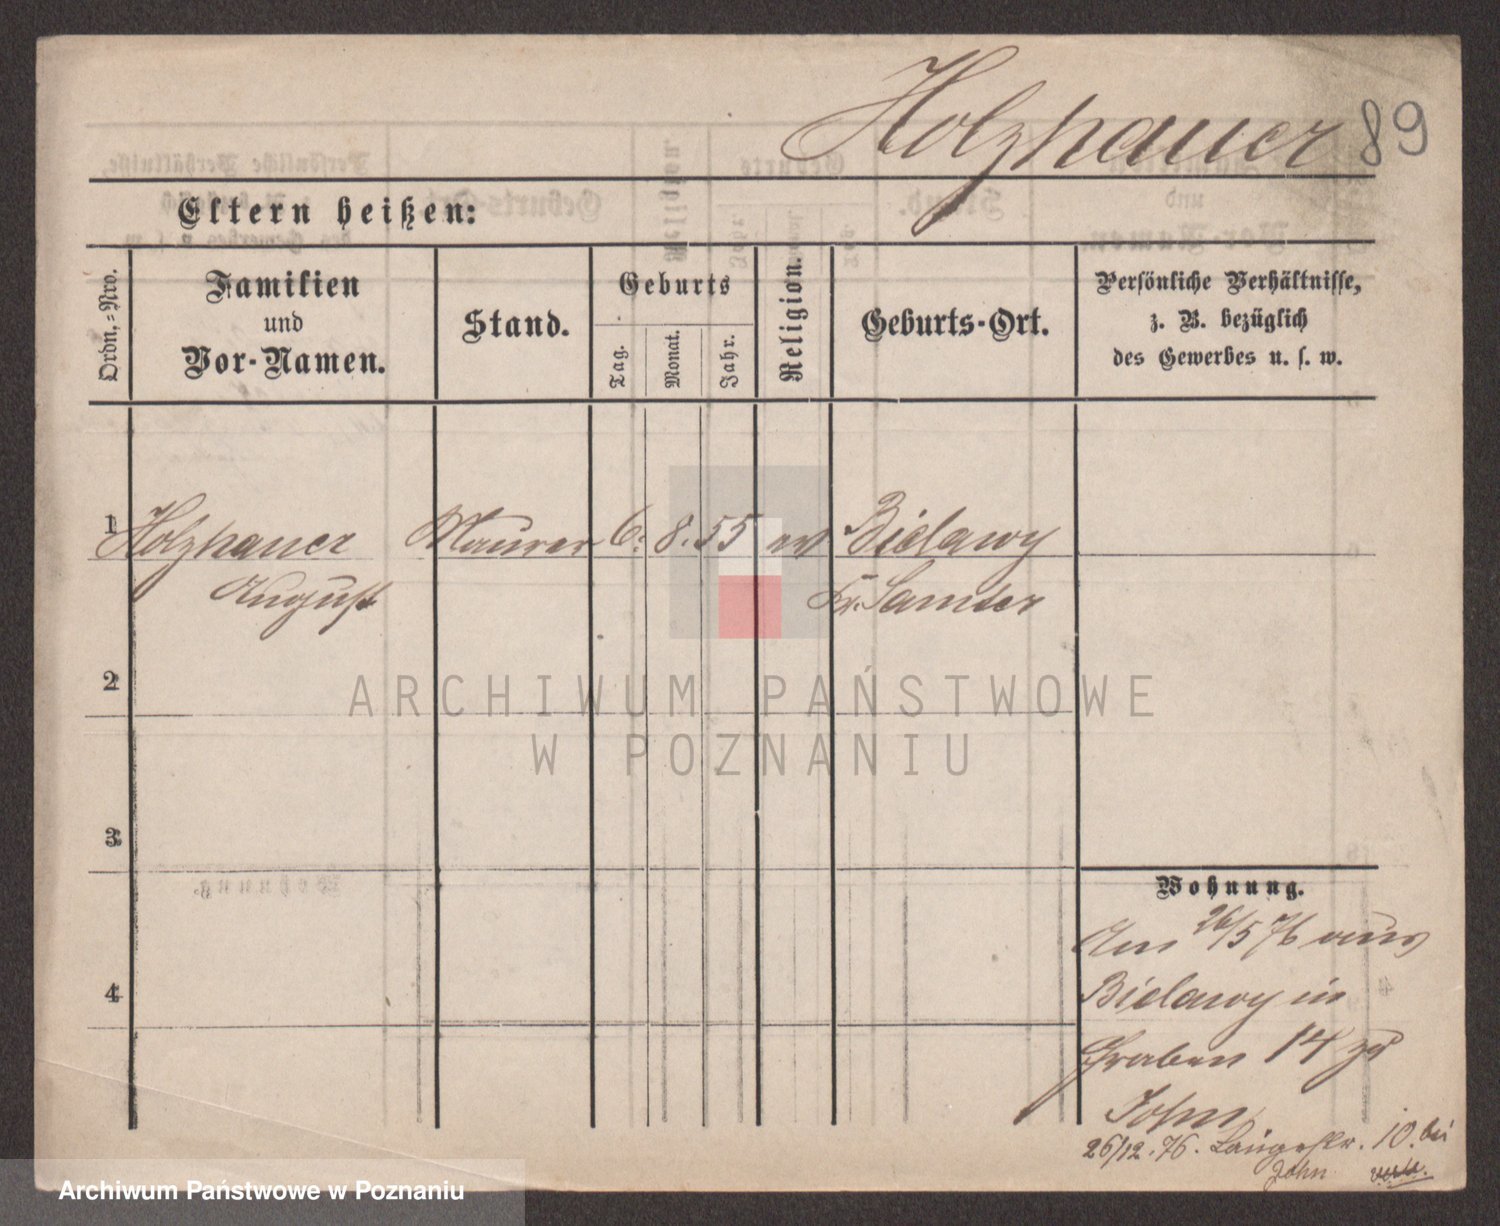 Holzhauer 89
Eltern heißen:
Ordn.-Nro.
Familien
und
Vor-Namen.
Stand.
Geburts
Tag.
Monat.
Jahr.
Religion.
Geburts-Ort.
Persönliche Verhältnisse,
z. B. bezüglich
des Gewerbes u. s. w.
1 Holzhauer Maurer 6. 8. 55 ev Bielawy
August Kr. Samter
2
3
4
Wohnung.
Am 26/5 76 aus
Bielawy in
Graben 14 zu
John
26/12.76. Langestr. 10. bei
John
ARCHIWUM PAŃSTWOWE
W POZNANIU
Archiwum Państwowe w Poznaniu